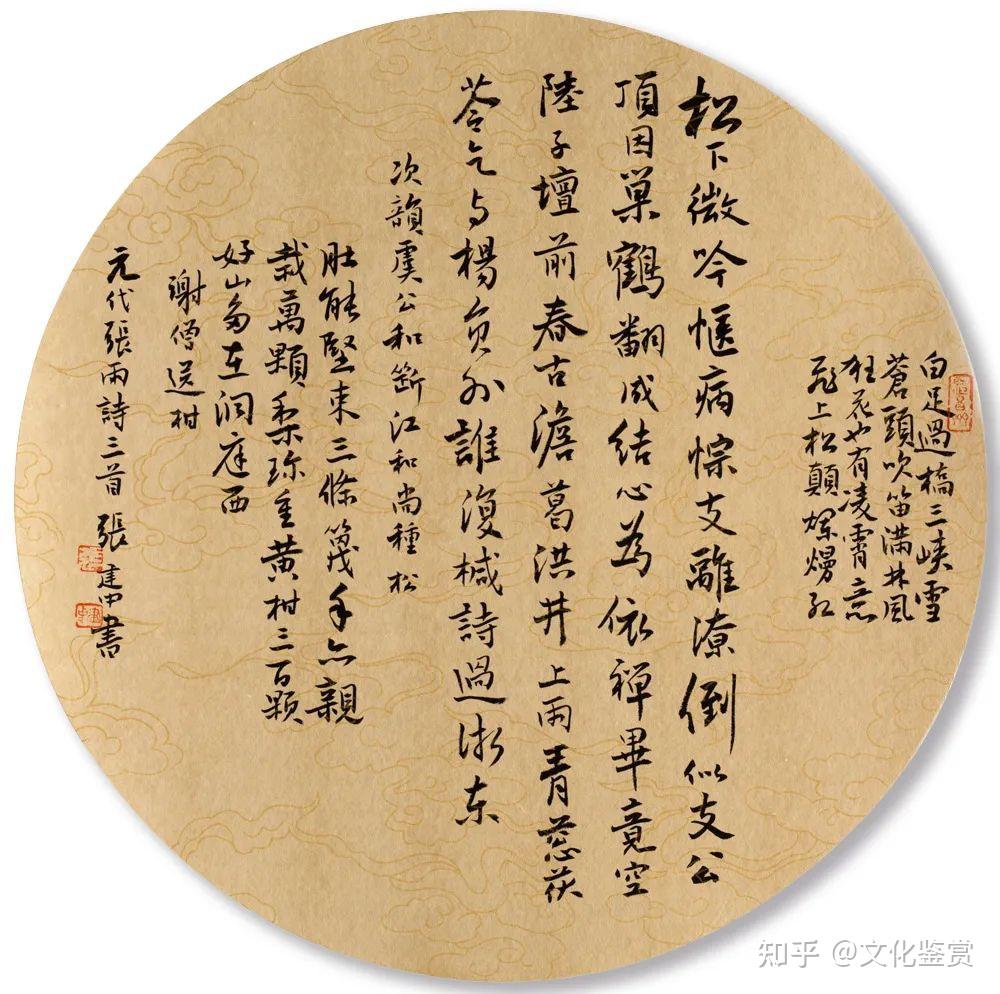 白足過橋三峽雪
蒼頭吹笛滿林風
狂花也有凌霄意
飛上松顛爛熳紅
松下微吟愜病悰支離潦倒似支公
頂因巢鶴翻成結心為依禪畢竟空
陸子壇前春古澹葛洪井上雨青葱茯
苓乞与楊貟外誰復椷詩過浙東
次韻虞公和斷江和尚種松
肚能堅束三條篾手亦親
栽萬顆梨珍重黄柑三百顆
好山多在洞庭西
謝僧送柑
元代張雨詩三首 張建中書
知乎 @文化鉴赏